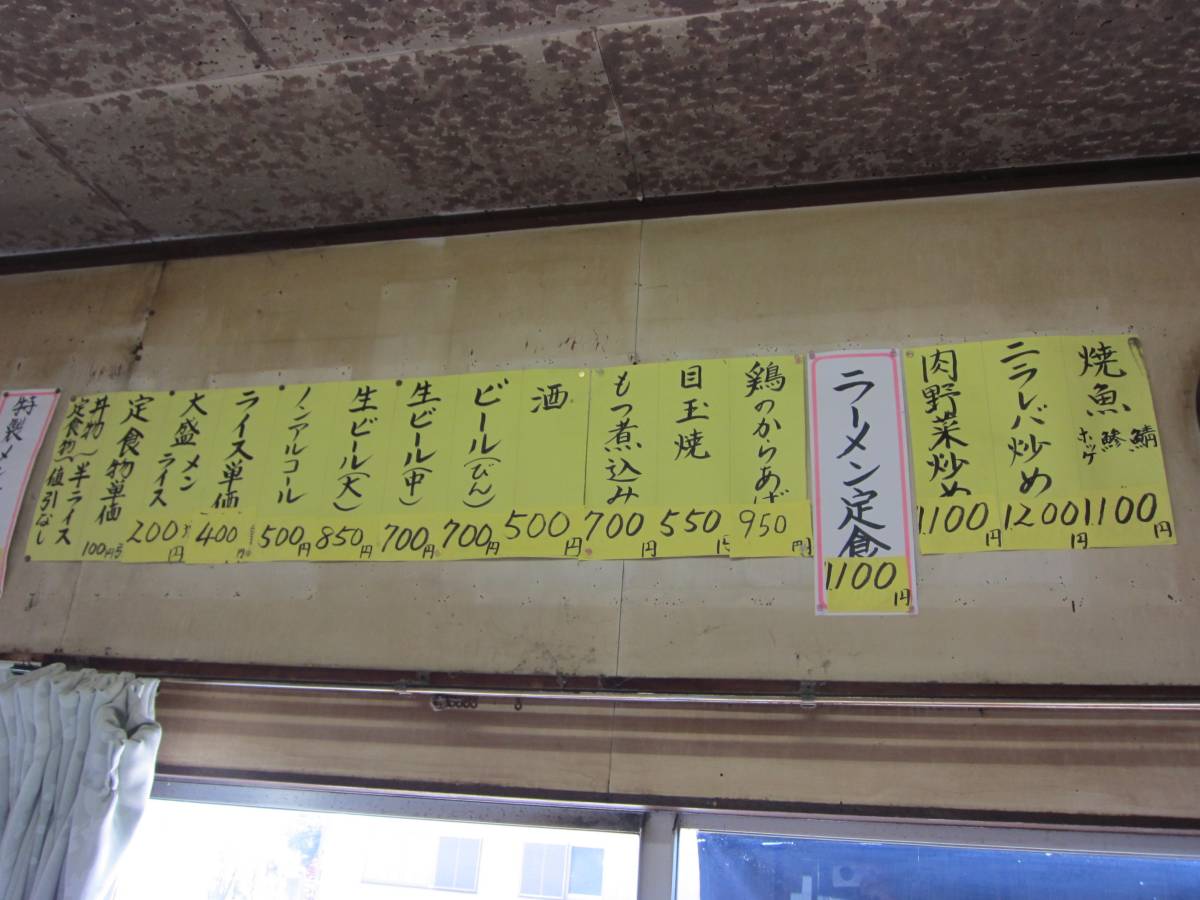 焼魚
鯖
鯵
ホッケ
1100円
ニラレバ炒め
1200円
肉野菜炒め
1100円
ラーメン定食
1100円
鶏のからあげ
950円
目玉焼
550円
もつ煮込み
700円
酒
500円
ビール(びん)
700円
生ビール(中)
700円
生ビール(大)
850円
ノンアルコール
500円
ライス単価
400円
大盛 メン
ライス
200円
定食物単価
丼物 半ライス
定食物 値引なし
100円
特製メン